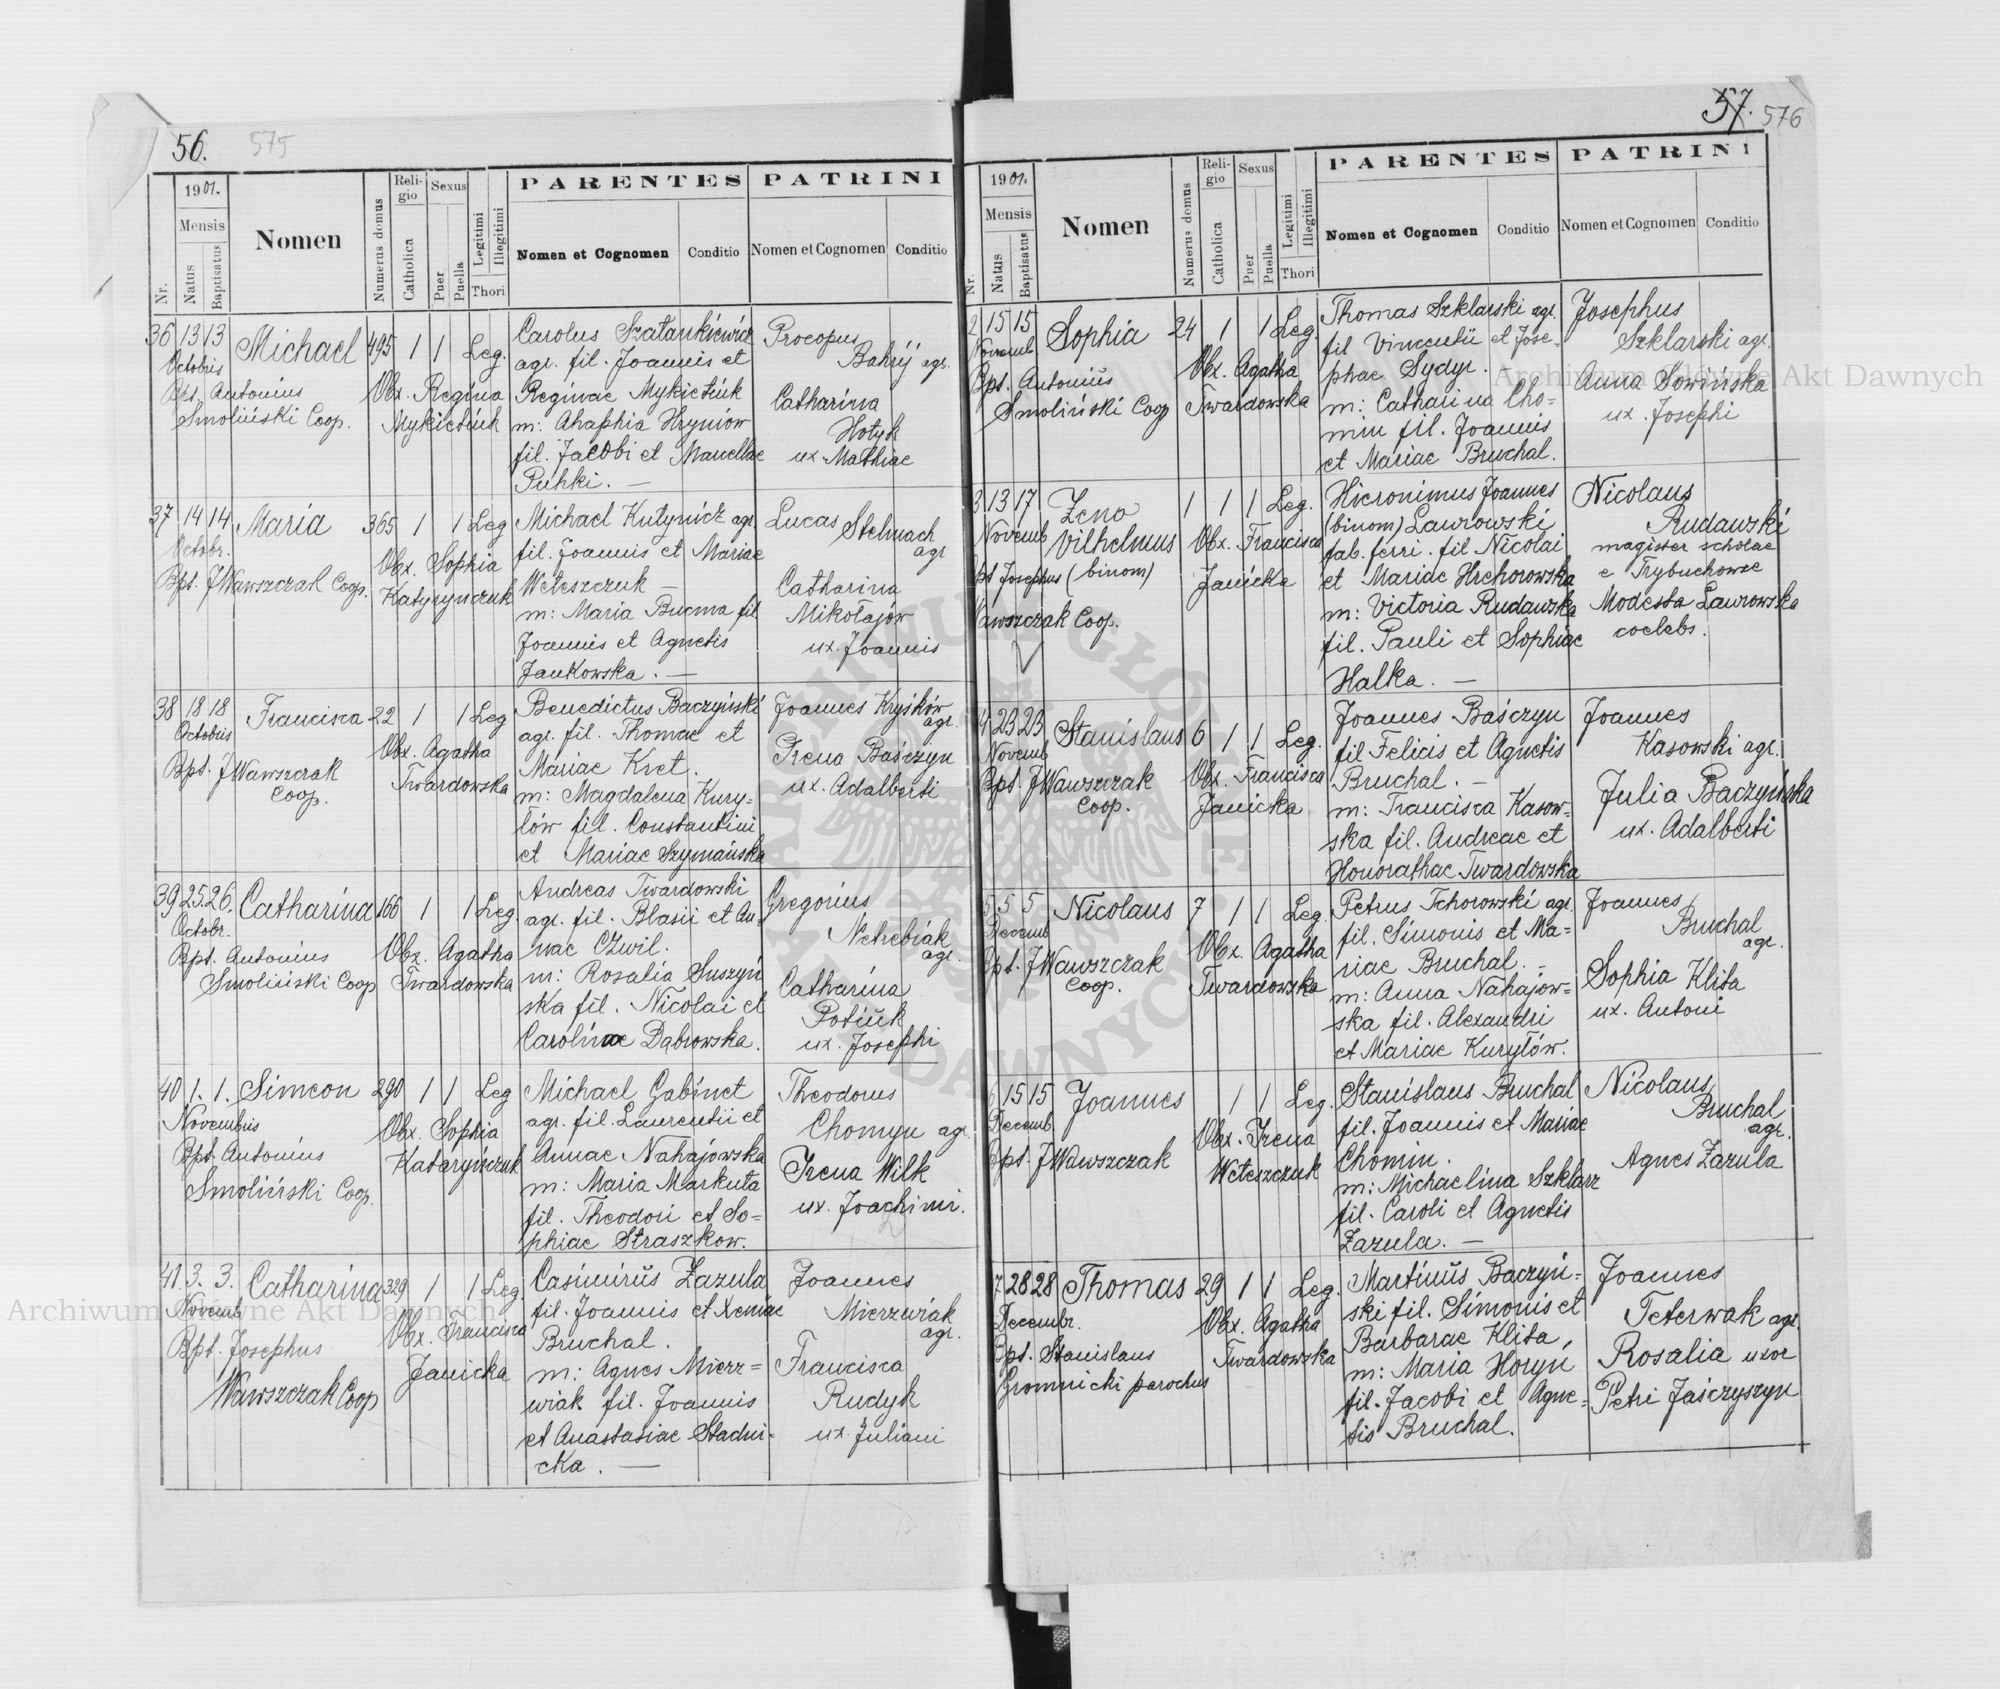 56. 575
1901.
Mensis
Nr.
Natus
Baptisatus
Nomen
Numerus domus
Religio
Catholica
Sexus
Puer
Puella
Legitimi
Illegitimi
Thori
PARENTES
Nomen et Cognomen
Conditio
PATRINI
Nomen et Cognomen
Conditio
36 13 13 Michael 495 1 1 Leg.
Octobris
Bpt. Antonius
Smoliński Coop.
Obx. Regina
Mykietiuk
Carolus Szatankiewicz
agr. fil. Joannis et
Reginae Mykietiuk
m: Ahaphia Hryniów
fil. Jacobi et Marcellae
Puhki. —
Procopus
Bahrij agr.
Catharina
Hotyk
ux. Mathiae
37 14 14 Maria 365 1 1 Leg
Octobr.
Bpt. J Wawszczak Coop.
Obx. Sophia
Katyrynczuk
Michael Kutynicz agr.
fil. Joannis et Mariae
Weteszczuk —
m: Maria Bucma fil.
Joannis et Agnetis
Jankowska. —
Lucas Stelmach
agr
Catharina
Mikołajów
ux. Joannis
38 18 18 Francisca 22 1 1 Leg
Octobris
Bpt. J Wawszczak
Coop.
Obx. Agatha
Twardowska
Benedictus Baczyński
agr. fil. Thomae et
Mariae Kret.
m: Magdalena Kury=
łów fil. Constantini
et Mariae Szymańska
Joannes Kryśków
agr.
Irena Baśczyn
ux. Adalberti
39 25. 26. Catharina 166 1 1 Leg
Octobr.
Bpt. Antonius
Smoliński Coop
Obx. Agatha
Twardowska
Andreas Twardowski
agr. fil. Blasii et An=
nae Czwil.
m: Rosalia Suszyń
ska fil. Nicolai et
Carolinae Dąbrowska.
Gregorius
Netrebiak
agr.
Catharina
Potiuk
ux. Josephi
40 1. 1. Simeon 290 1 1 Leg
Novembris
Bpt. Antonius
Smoliński Coop.
Obx. Sophia
Kataryńczuk
Michael Gabinet
agr. fil. Laurentii et
Annae Nahajowska
m: Maria Markuta
fil. Theodori et So=
phiae Straszkow.
Theodorus
Chomyn agr.
Irena Wilk
ux. Joachimi.
41 3. 3. Catharina 329 1 1 Leg.
Novemb
Bpt. Josephus
Wawszczak Coop
Obx. Francisca
Janicka
Casimirus Zazula
fil. Joannis et Xeniae
Bruchal.
m: Agnes Mierz=
wiak fil. Joannis
et Anastasiae Stadni=
cka. —
Joannes
Mierzwiak
agr.
Francisca
Rudyk
ux. Juliani
57. 576
1901.
Mensis
Nr.
Natus
Baptisatus
Nomen
Numerus domus
Religio
Catholica
Sexus
Puer
Puella
Legitimi
Illegitimi
Thori
PARENTES
Nomen et Cognomen
Conditio
PATRINI
Nomen et Cognomen
Conditio
2 15 15 Sophia 24 1 1 Leg.
Novemb
Bpt. Antonius
Smoliński Coop
Obx. Agatha
Twardowska
Thomas Szklarski agr.
fil Vincentii et Jose=
phae Sydyr. —
m: Catharina Cho=
min fil. Joannis
et Mariae Bruchal.
Josephus
Szklarski agr.
Anna Sowińska
ux. Josephi
3 13 17 Zeno 1 1 1 Leg.
Novemb Vilhelmus
Bpt Josephus (binom)
Wawszczak Coop.
Obx. Francisca
Janicka
Hieronimus Joannes
(binom) Laurowski
fab. ferri. fil Nicolai
et Mariae Hrehorowska
m: Victoria Rudawska
fil. Pauli et Sophiae
Halka. —
Nicolaus
Rudawski
magister scholae
e Trybuchowce
Modesta Laurowska
coelebs.
4 23 23 Stanislaus 6 1 1 Leg.
Novemb
Bpt. J Wawszczak
Coop.
Obx. Francisca
Janicka
Joannes Baśczyn
fil Felicis et Agnetis
Bruchal. —
m: Francisca Kasow=
ska fil. Andreae et
Honorathae Twardowska
Joannes
Kasowski agr.
Julia Baczyńska
ux. Adalberti
5 5 5 Nicolaus 7 1 1 Leg.
Decemb
Bpt. J Wawszczak
Coop.
Obx. Agatha
Twardowska
Petrus Tchorowski agr.
fil. Simonis et Ma=
riae Bruchal. —
m: Anna Nahajow=
ska fil. Alexandri
et Mariae Kuryłów.
Joannes
Bruchal
agr.
Sophia Klita
ux. Antoni
6 15 15 Joannes 1 1 Leg.
Decemb.
Bpt. J Wawszczak
Obx. Irena
Weteszczuk
Stanislaus Bruchal
fil. Joannis et Mariae
Chomin.
m: Michaelina Szklarz
fil. Caroli et Agnetis
Zazula. —
Nicolaus
Bruchal
agr.
Agnes Zazula
7 28 28 Thomas 29 1 1 Leg.
Decembr.
Bpt. Stanislaus
Gromnicki parochus
Obx. Agatha
Twardowska
Martinus Baczyń=
ski fil. Simonis et
Barbarae Klita,
m: Maria Horyń
fil. Jacobi et Agne=
tis Bruchal.
Joannes
Teterwak agr.
Rosalia uxor
Petri Jaśczyszyn
Archiwum Główne Akt Dawnych
Archiwum Główne Akt Dawnych
ARCHIWUM GŁÓWNE AKT DAWNYCH